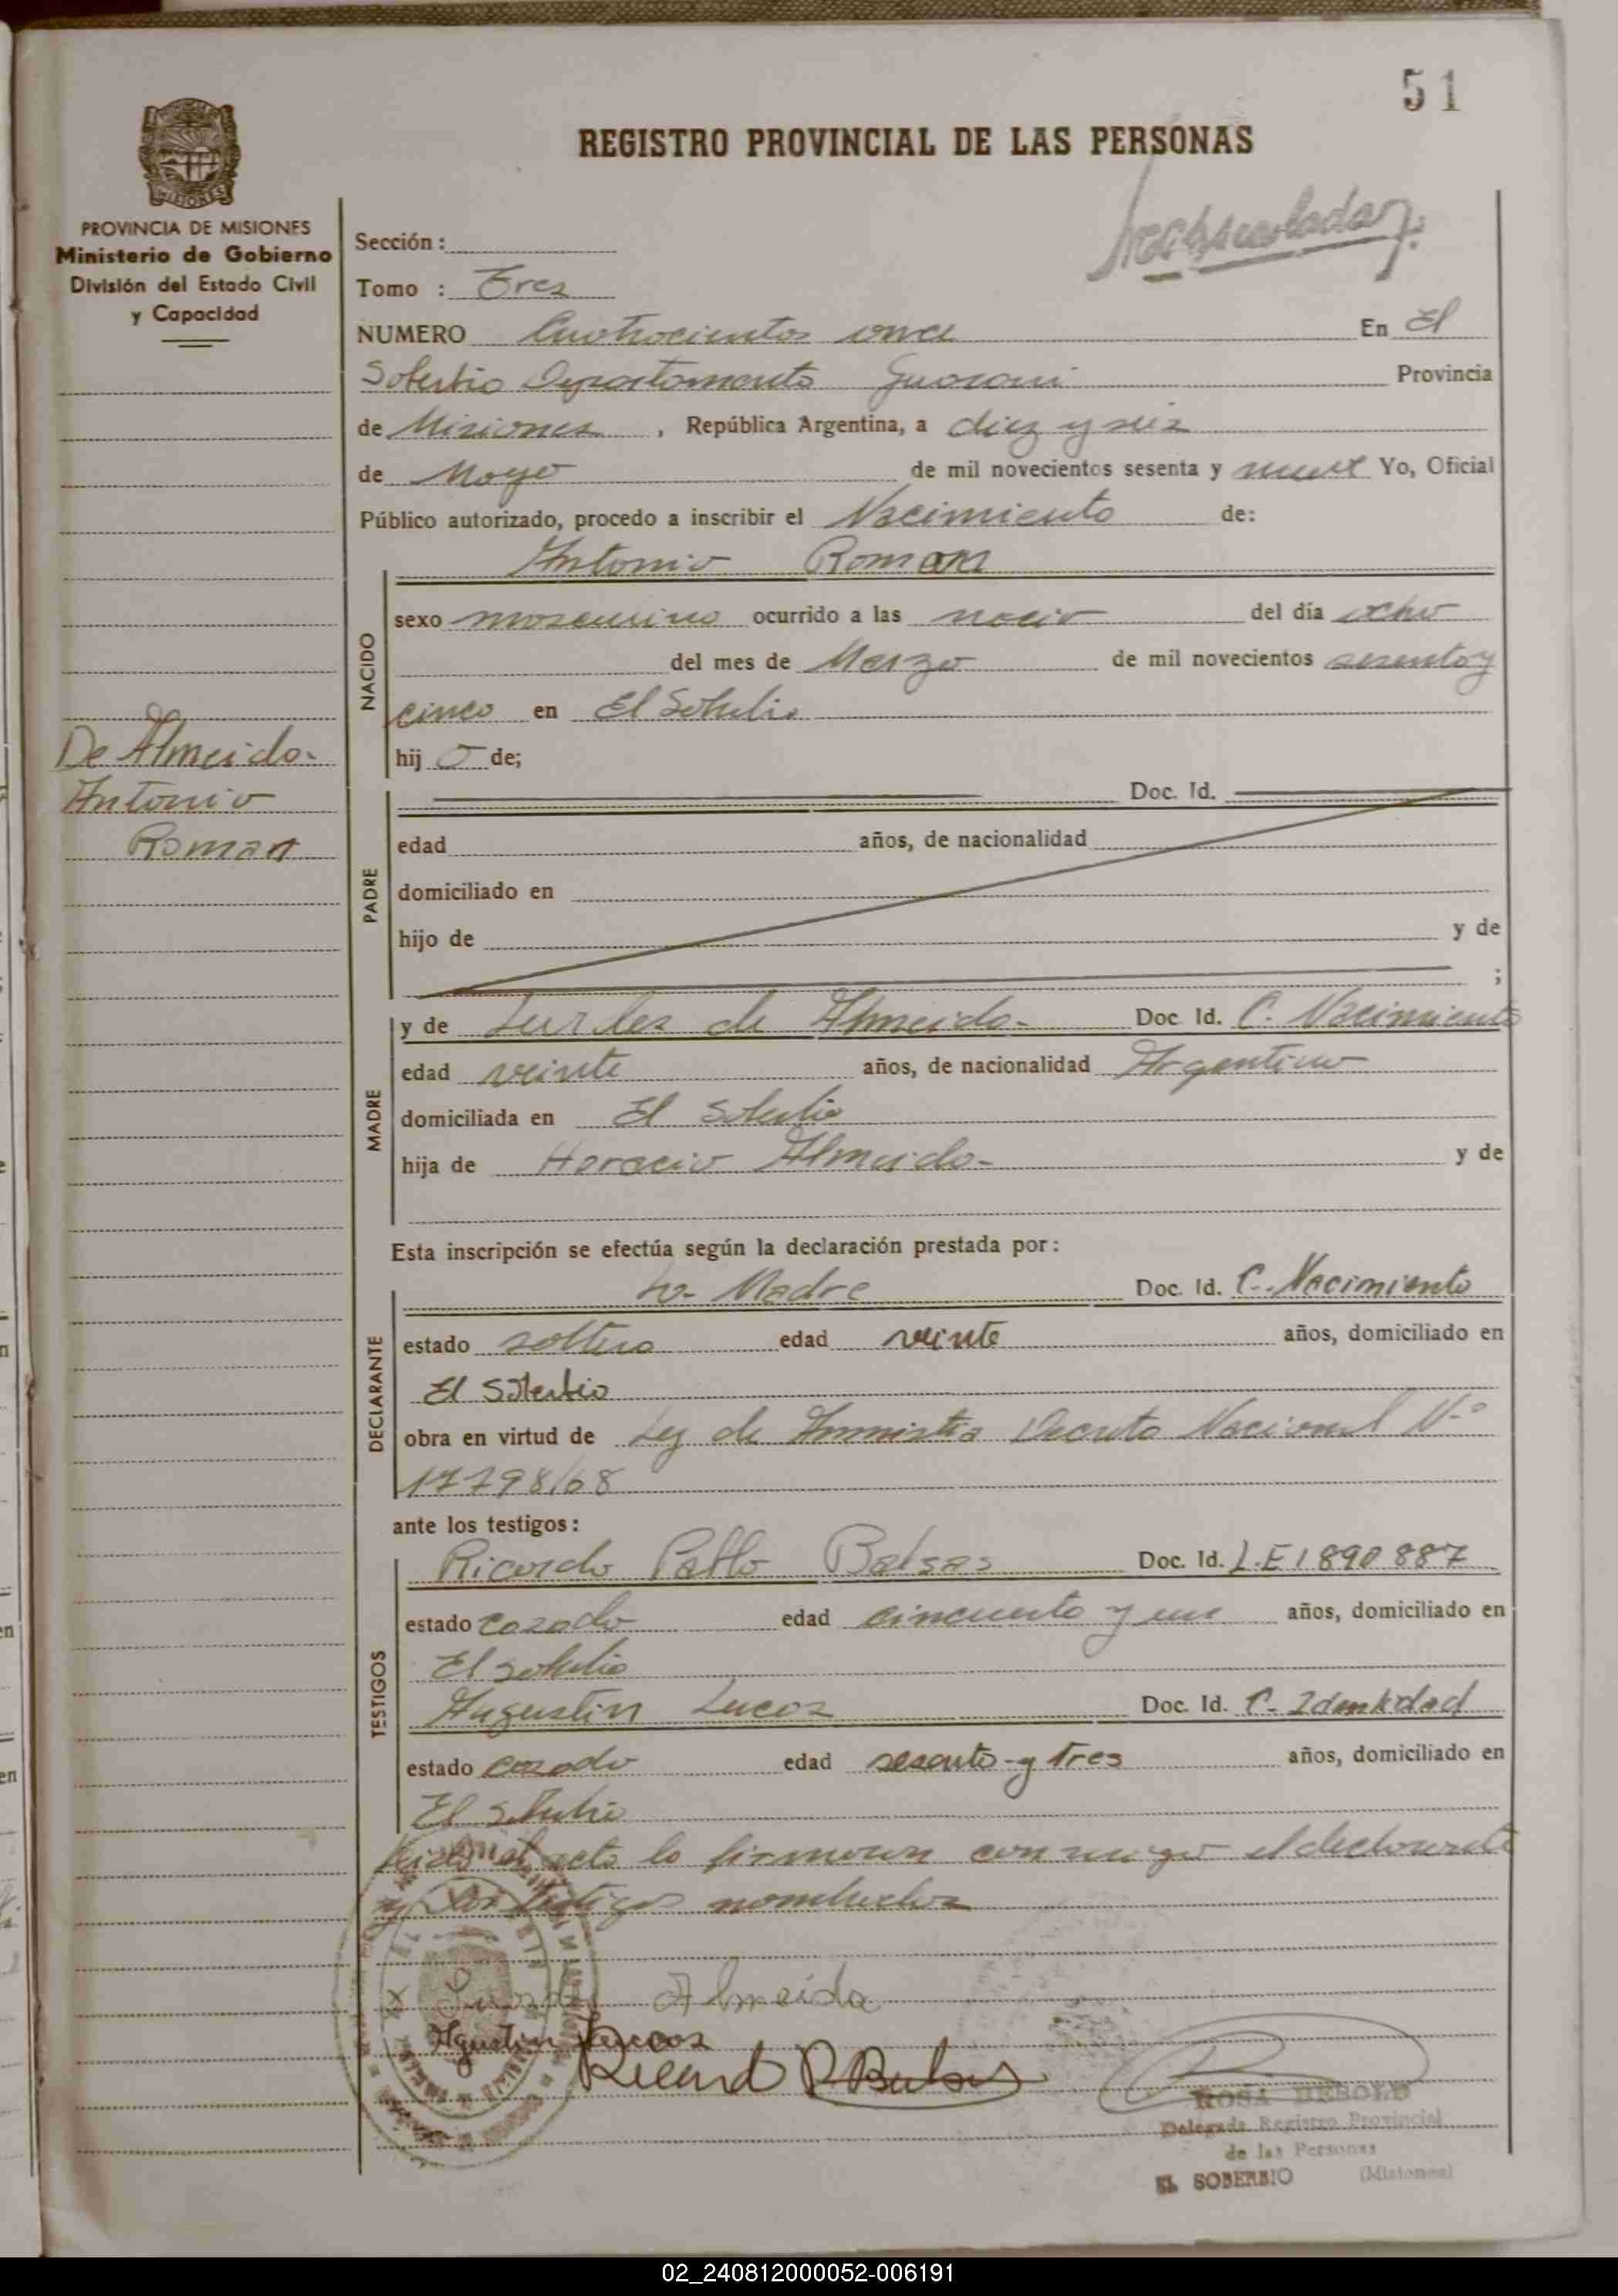 51
REGISTRO PROVINCIAL DE LAS PERSONAS
MISIONES
PROVINCIA DE MISIONES
Ministerio de Gobierno
División del Estado Civil
y Capacidad
Sección :
Tomo : Tres
NUMERO Cuatrocientos once En El
Soberbio Departamento Guarani Provincia
de Misiones , República Argentina, a diez y seis
de Mayo de mil novecientos sesenta y nueve Yo, Oficial
Público autorizado, procedo a inscribir el Nacimiento de:
Antonio Roman
NACIDO
sexo masculino ocurrido a las del día ocho
del mes de Marzo de mil novecientos sesenta y
cinco en El Soberbio
hij o de;
De Almeida
Antonio
Roman
PADRE
Doc. Id.
edad años, de nacionalidad
domiciliado en
hijo de y de
;
MADRE
y de Lurdes de Almeida Doc Id. C. Nacimiento
edad veinte años, de nacionalidad Argentina
domiciliada en El Soberbio
hija de Horacio Almeida y de
Esta inscripción se efectúa según la declaración prestada por:
DECLARANTE
La Madre Doc. Id. C. Nacimiento
estado soltera edad veinte años, domiciliado en
El Soberbio
obra en virtud de Ley de Amnistia Decreto Nacional Nº
17798/68
ante los testigos:
TESTIGOS
Ricardo Pablo Balsas Doc. Id. L.E 1890887
estado casado edad cincuenta y un años, domiciliado en
El Soberbio
Augustin Lucas Doc. Id. C. Identidad
estado casado edad sesenta y tres años, domiciliado en
El Soberbio
Leida el acta la firman con migo el declarante
y los testigos nombrados
X Almeida
Agustin Lucas
Ricardo P Balsas
ROSA
Delegada Registro Provincial
de las Personas
EL SOBERBIO (Misiones)
02_240812000052-006191